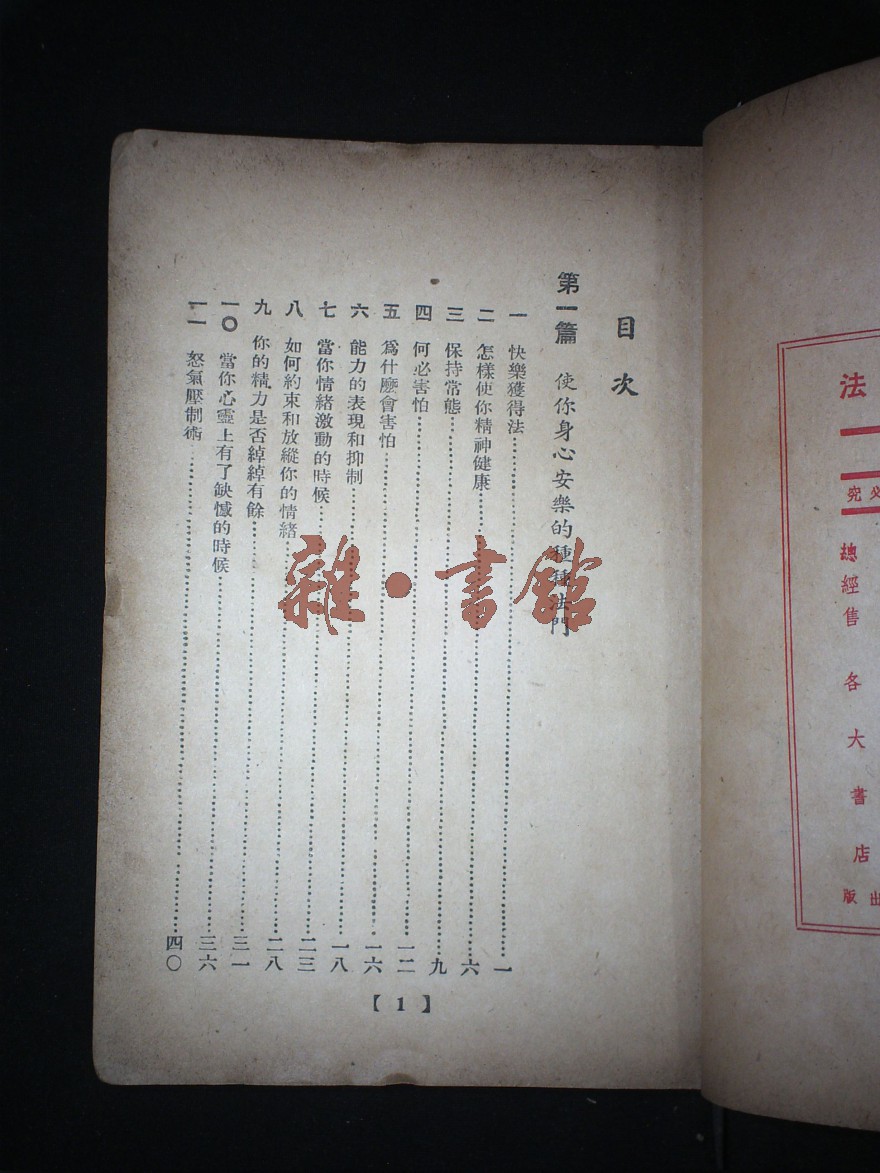 法
必究
總經售 各大書店
出版
目次
第一篇 使你身心安樂的種種法門
一 快樂獲得法 一
二 怎樣使你精神健康 六
三 保持常態 九
四 何必害怕 一二
五 爲什麽會害怕 一六
六 能力的表現和抑制 一八
七 當你情緒激動的時候 二三
八 如何約束和放縱你的情緒 二八
九 你的精力是否綽綽有餘 三一
一〇 當你心靈上有了缺憾的時候 三六
一一 怒氣壓制術 四〇
【1】
雜·書館